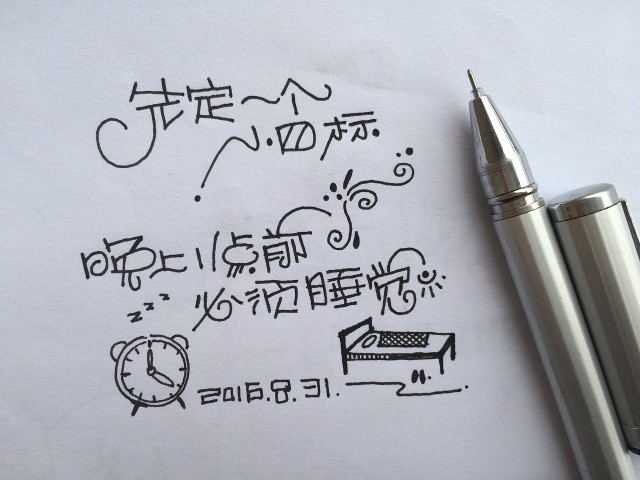 先定一个
小目标
晚上11点前
必须睡觉
zzz
2016.8.31.